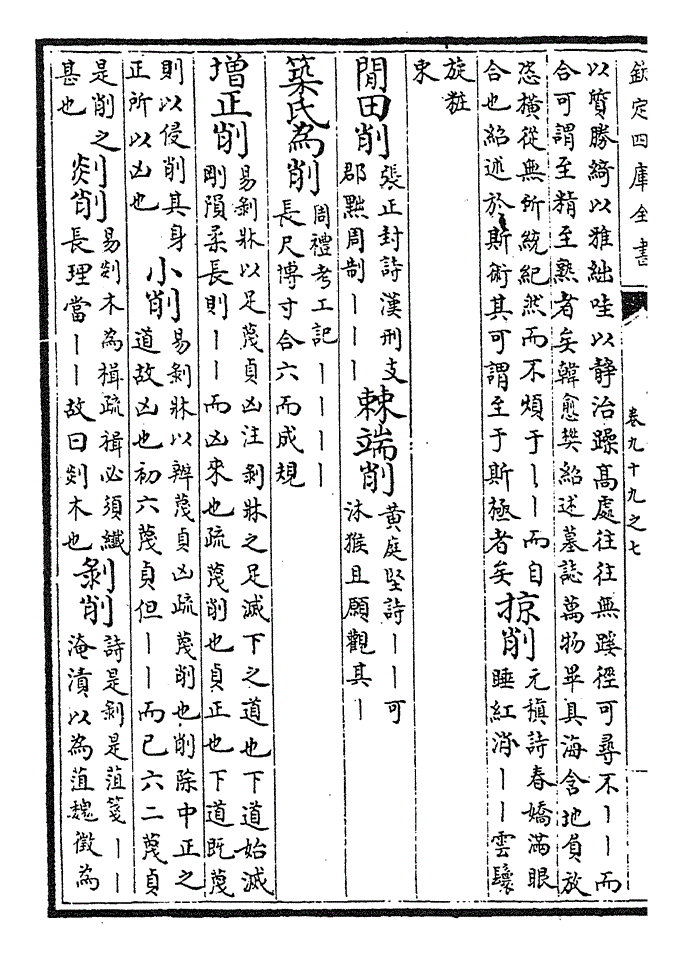 欽定四庫全書
卷九十九之七
以質勝綺以雅絀哇以静治躁髙處往往無蹊徑可尋不丨丨而
合可謂至精至熟者矣韓愈樊紹述墓誌萬物畢具海含地負放
恣橫從無所統紀然而不煩于丨丨而自
合也紹述於斯術其可謂至于斯極者矣
掠削
元稹詩春嬌滿眼
睡紅消丨丨雲鬟
旋粧
束
閒田削
張正封詩漢刑支
郡黜周剖丨丨丨
棘端削
黄庭堅詩丨丨可
沐猴且願觀其丨
築氏為削
周禮考工記丨丨丨丨
長尺博寸合六而成規
增正削
易剝牀以足蔑貞凶注剝牀之足滅下之道也下道始滅
剛隕柔長則丨丨而凶來也疏蔑削也貞正也下道既蔑
則以侵削其身
正所以凶也
小削
易剝牀以辨蔑貞凶疏蔑削也削除中正之
道故凶也初六蔑貞但丨丨而已六二蔑貞
是削之
甚也
剡削
易剡木為楫疏楫必須纎
長理當丨丨故曰剡木也
剝削
詩是剝是菹箋丨丨
淹漬以為菹魏徵為